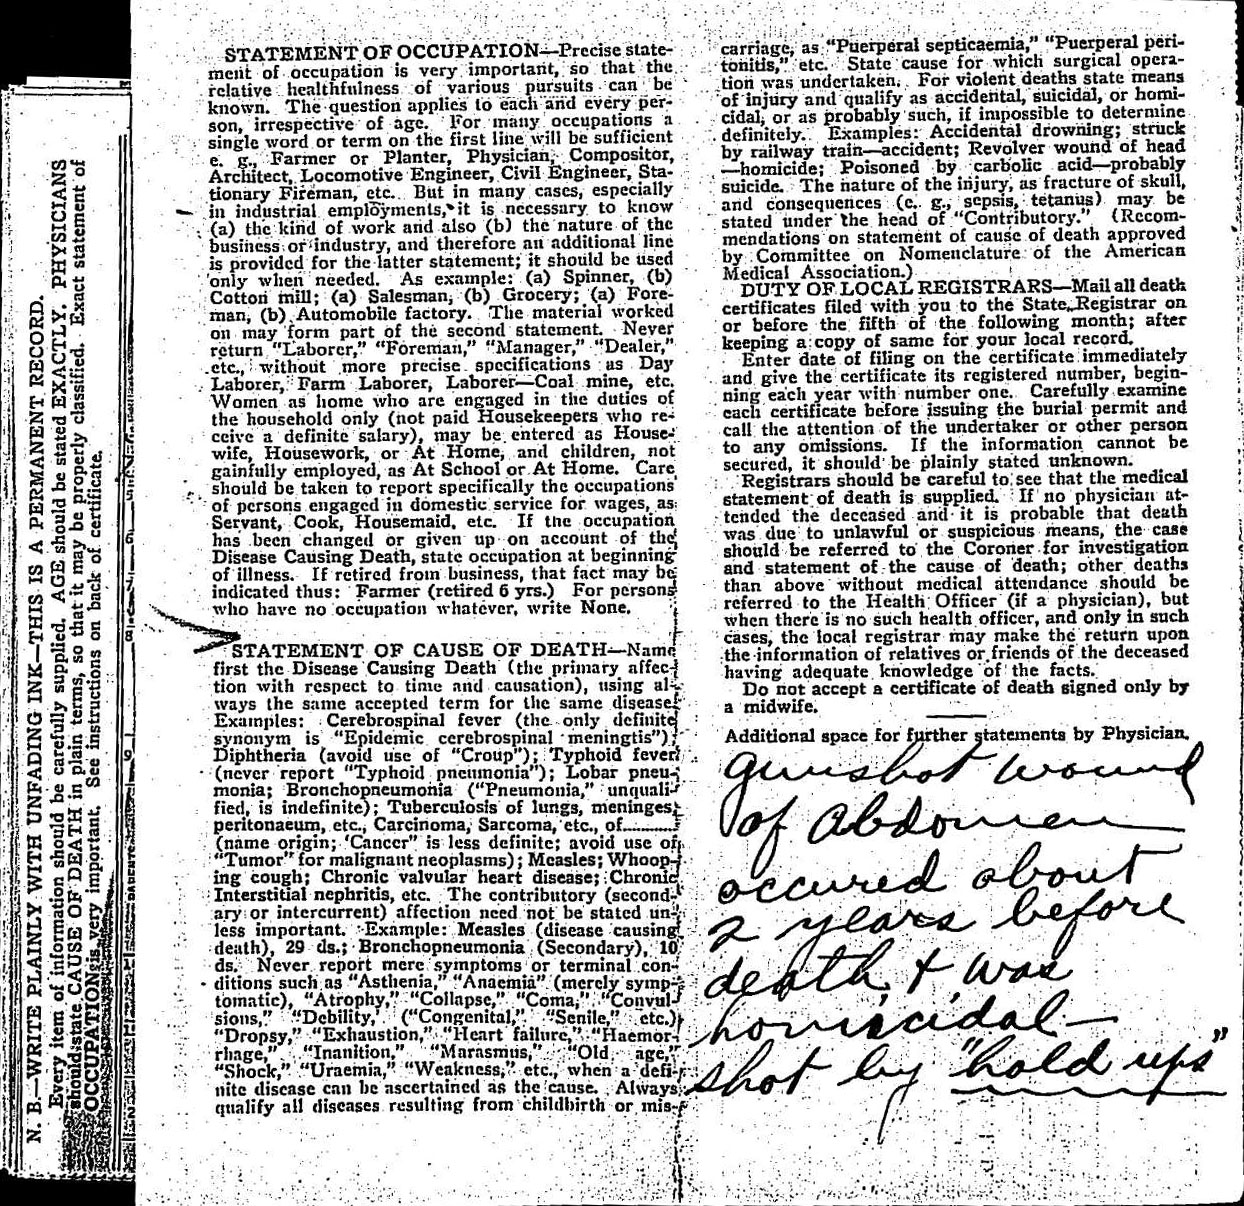 N. B.—WRITE PLAINLY WITH UNFADING INK—THIS IS A PERMANENT RECORD.
Every item of information should be carefully supplied. AGE should be stated EXACTLY. PHYSICIANS
should state CAUSE OF DEATH in plain terms, so that it may be properly classified. Exact statement of
OCCUPATION is very important. See instructions on back of certificate.
STATEMENT OF OCCUPATION—Precise state-
ment of occupation is very important, so that the
relative healthfulness of various pursuits can be
known. The question applies to each and every per-
son, irrespective of age. For many occupations a
single word or term on the first line will be sufficient
e. g., Farmer or Planter, Physician, Compositor,
Architect, Locomotive Engineer, Civil Engineer, Sta-
tionary Fireman, etc. But in many cases, especially
in industrial employments, it is necessary to know
(a) the kind of work and also (b) the nature of the
business or industry, and therefore an additional line
is provided for the latter statement; it should be used
only when needed. As example: (a) Spinner, (b)
Cotton mill; (a) Salesman, (b) Grocery; (a) Fore-
man, (b) Automobile factory. The material worked
on may form part of the second statement. Never
return "Laborer," "Foreman," "Manager," "Dealer,"
etc., without more precise specifications as Day
Laborer, Farm Laborer, Laborer—Coal mine, etc.
Women as home who are engaged in the duties of
the household only (not paid Housekeepers who re-
ceive a definite salary), may be entered as House-
wife, Housework, or At Home, and children, not
gainfully employed, as At School or At Home. Care
should be taken to report specifically the occupations
of persons engaged in domestic service for wages, as
Servant, Cook, Housemaid, etc. If the occupation
has been changed or given up on account of the
Disease Causing Death, state occupation at beginning
of illness. If retired from business, that fact may be
indicated thus: Farmer (retired 6 yrs.) For persons
who have no occupation whatever, write None.
STATEMENT OF CAUSE OF DEATH—Name
first the Disease Causing Death (the primary affec-
tion with respect to time and causation), using al-
ways the same accepted term for the same disease.
Examples: Cerebrospinal fever (the only definite
synonym is "Epidemic cerebrospinal meningtis");
Diphtheria (avoid use of "Croup"); Typhoid fever
(never report "Typhoid pneumonia"); Lobar pneu-
monia; Bronchopneumonia ("Pneumonia," unquali-
fied, is indefinite); Tuberculosis of lungs, meninges,
peritonaeum, etc., Carcinoma, Sarcoma, etc., of...........
(name origin; 'Cancer" is less definite; avoid use of
"Tumor" for malignant neoplasms); Measles; Whoop-
ing cough; Chronic valvular heart disease; Chronic
Interstitial nephritis, etc. The contributory (second-
ary or intercurrent) affection need not be stated un-
less important. Example: Measles (disease causing
death), 29 ds.; Bronchopneumonia (Secondary), 10
ds. Never report mere symptoms or terminal con-
ditions such as "Asthenia," "Anaemia" (merely symp-
tomatic), "Atrophy," "Collapse," "Coma," "Convul-
sions," "Debility," ("Congenital," "Senile," etc.)
"Dropsy," "Exhaustion," "Heart failure," "Haemor-
rhage," "Inanition," "Marasmus," "Old age,"
"Shock," "Uraemia," "Weakness," etc., when a defi-
nite disease can be ascertained as the cause. Always
qualify all diseases resulting from childbirth or mis-
carriage, as "Puerperal septicaemia," "Puerperal peri-
tonitis," etc. State cause for which surgical opera-
tion was undertaken. For violent deaths state means
of injury and qualify as accidental, suicidal, or homi-
cidal, or as probably such, if impossible to determine
definitely. Examples: Accidental drowning; struck
by railway train—accident; Revolver wound of head
—homicide; Poisoned by carbolic acid—probably
suicide. The nature of the injury, as fracture of skull,
and consequences (e. g., sepsis, tetanus) may be
stated under the head of "Contributory." (Recom-
mendations on statement of cause of death approved
by Committee on Nomenclature of the American
Medical Association.)
DUTY OF LOCAL REGISTRARS—Mail all death
certificates filed with you to the State Registrar on
or before the fifth of the following month; after
keeping a copy of same for your local record.
Enter date of filing on the certificate immediately
and give the certificate its registered number, begin-
ning each year with number one. Carefully examine
each certificate before issuing the burial permit and
call the attention of the undertaker or other person
to any omissions. If the information cannot be
secured, it should be plainly stated unknown.
Registrars should be careful to see that the medical
statement of death is supplied. If no physician at-
tended the deceased and it is probable that death
was due to unlawful or suspicious means, the case
should be referred to the Coroner for investigation
and statement of the cause of death; other deaths
than above without medical attendance should be
referred to the Health Officer (if a physician), but
when there is no such health officer, and only in such
cases, the local registrar may make the return upon
the information of relatives or friends of the deceased
having adequate knowledge of the facts.
Do not accept a certificate of death signed only by
a midwife.
Additional space for further statements by Physician.
Gunshot wound
of Abdomen
occured about
2 years before
death, & was
homicidal—
shot by "hold ups"